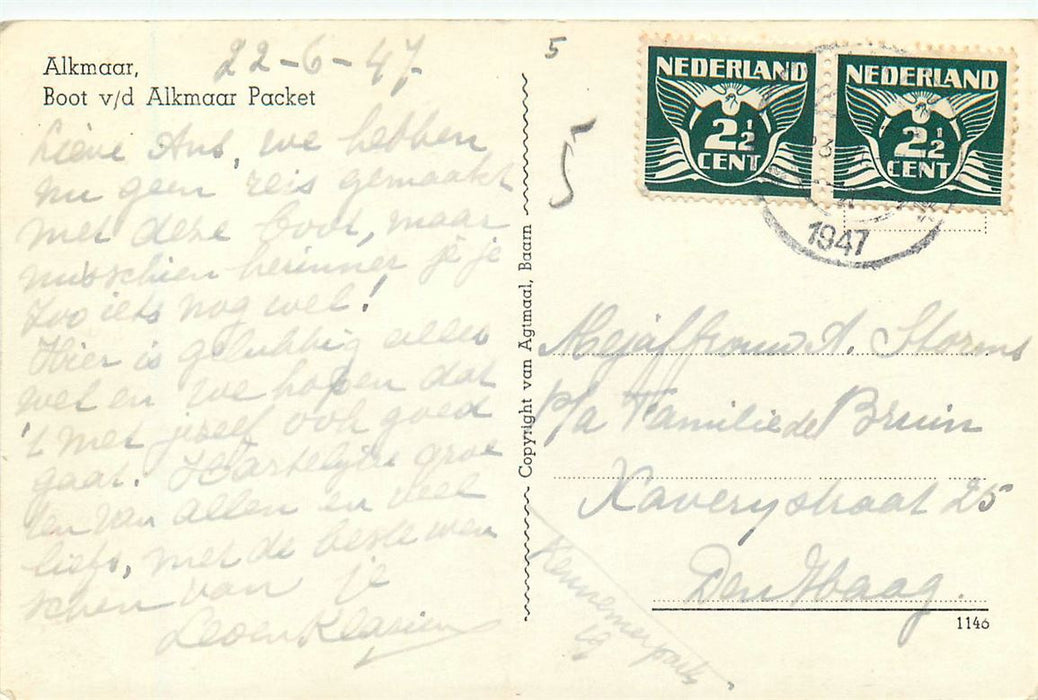 Alkmaar,
Boot v/d Alkmaar Packet
22-6-47
Lieve Ans, we hebben
nu geen reis gemaakt
met deze boot, maar
misschien herinner je je
zoo iets nog wel!
Hier is gelukkig alles
wel en we hopen dat
't met jezelf ook goed
gaat. Hartelijke groe
ten van allen en veel
liefs, met de beste wen
schen van je
Copyright van Agtmaal, Baarn
5
5
NEDERLAND
2½
CENT
NEDERLAND
2½
CENT
1947
Mejuffrouw A. Storms
p/a Familie de Bruin
Xaverystraat 25
Den Haag.
Kennemerpark
19
1146